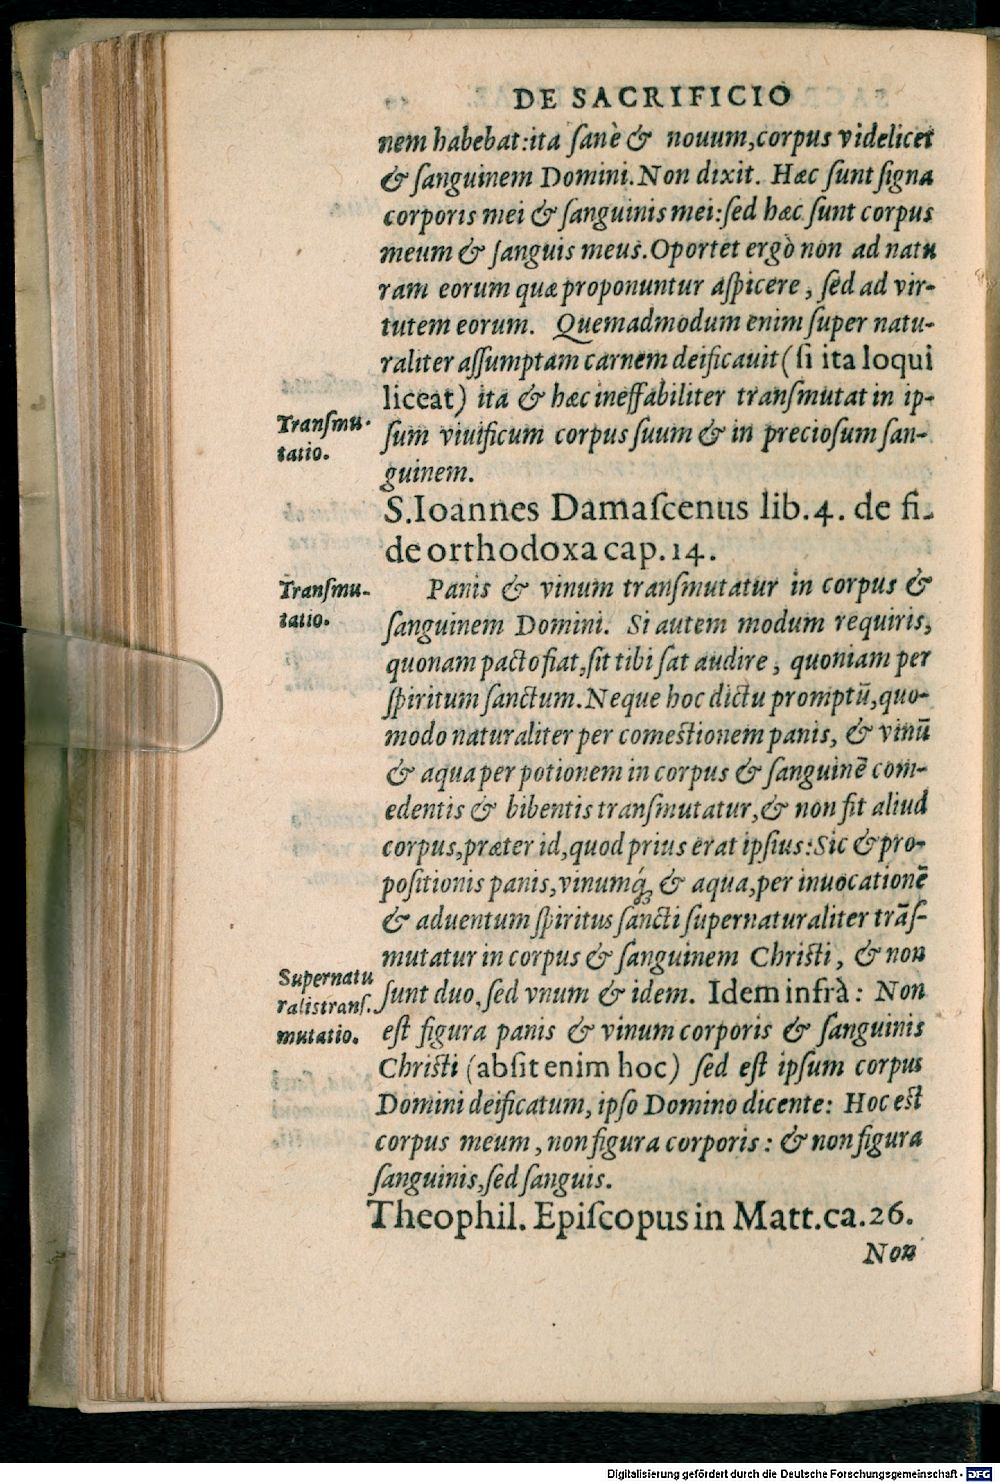 DE SACRIFICIO
nem habebat:ita ſanè & nouum,corpus videlicet
& ſanguinem Domini.Non dixit. Hæc ſunt ſigna
corporis mei & ſanguinis mei:ſed hæc ſunt corpus
meum & ſanguis meus.Oportet ergò non ad natu
ram eorum quæ proponuntur aſpicere, ſed ad vir-
tutem eorum. Quemadmodum enim ſuper natu-
raliter aſſumptam carnem deificauit (ſi ita loqui
liceat) ita & hæc ineffabiliter tranſmutat in ip-
Tranſmu-
tatio.
ſum viuificum corpus ſuum & in precioſum ſan-
guinem.
S.Ioannes Damaſcenus lib.4. de fi-
de orthodoxa cap.14.
Tranſmu-
tatio.
Panis & vinum tranſmutatur in corpus &
ſanguinem Domini. Si autem modum requiris,
quonam pacto fiat,ſit tibi ſat audire, quoniam per
ſpiritum ſanctum.Neque hoc dictu promptũ,quo-
modo naturaliter per comeſtionem panis, & vinũ
& aqua per potionem in corpus & ſanguinẽ com-
edentis & bibentis tranſmutatur,& non fit aliud
corpus,præter id,quod prius erat ipſius:Sic & pro-
poſitionis panis,vinumq́; & aqua,per inuocationẽ
& aduentum ſpiritus ſancti ſupernaturaliter trãſ-
mutatur in corpus & ſanguinem Chriſti, & non
Supernatu
ralis tranſ-
mutatio.
ſunt duo, ſed vnum & idem. Idem infrà: Non
eſt figura panis & vinum corporis & ſanguinis
Chriſti (abſit enim hoc) ſed eſt ipſum corpus
Domini deificatum, ipſo Domino dicente: Hoc eſt
corpus meum, non figura corporis: & non figura
ſanguinis,ſed ſanguis.
Theophil. Epiſcopus in Matt.ca.26.
Non
Digitalisierung gefördert durch die Deutsche Forschungsgemeinschaft - DFG